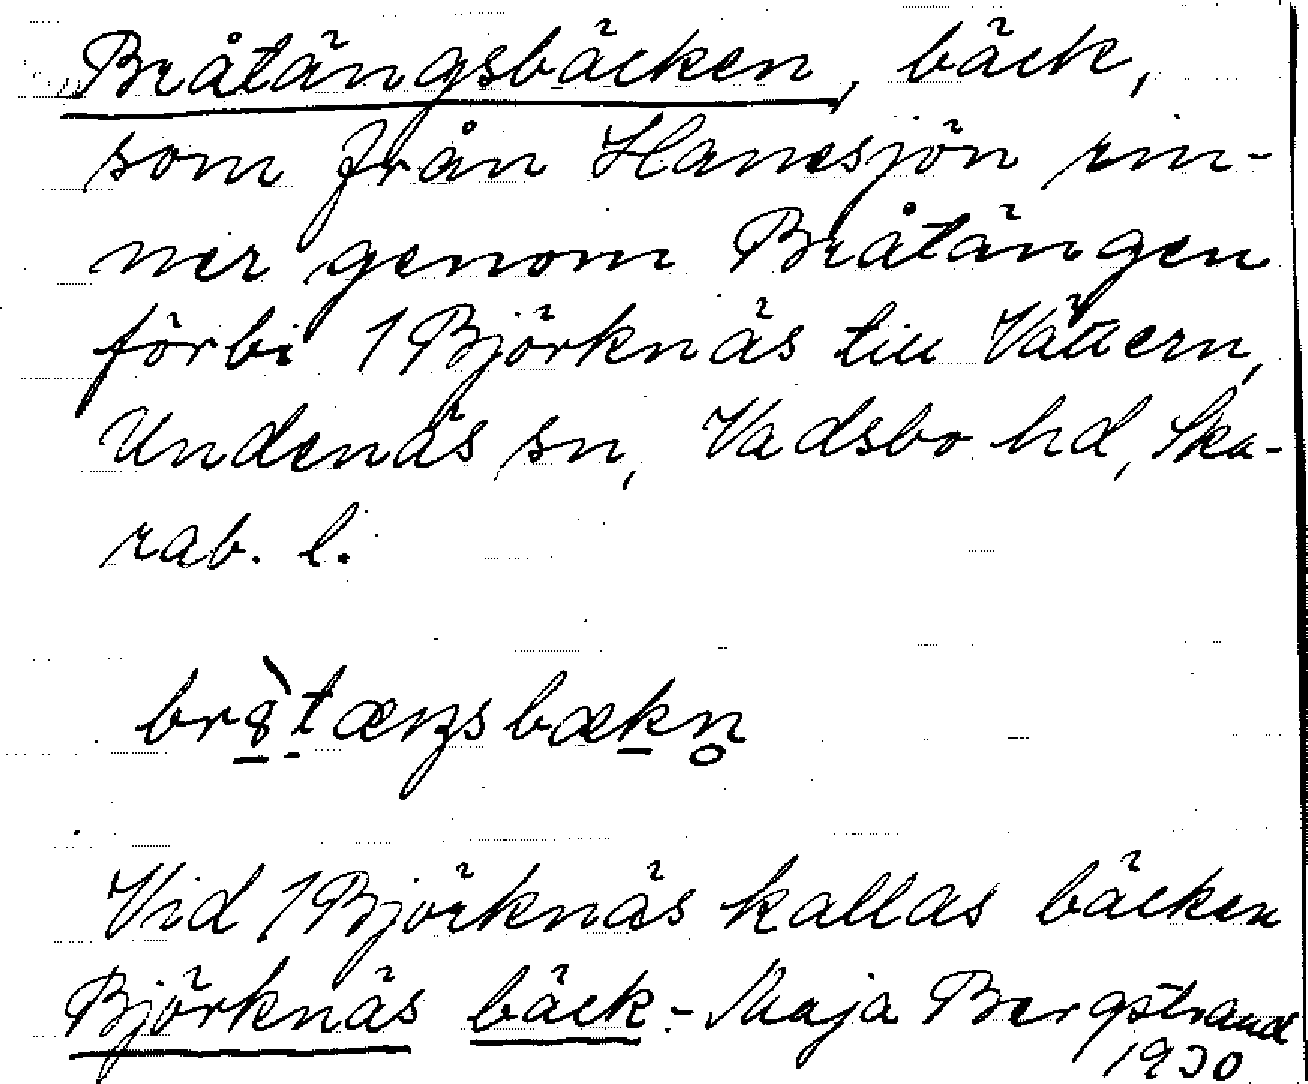 Bråtängsbäcken, bäck,
som från Hanesjön rin-
ner genom Bråtängen
förbi 1 Björknäs till Vättern,
Undenäs sn, Vadsbo hd, Ska-
rab. l.
Vid 1 Björknäs kallas bäcken
Björknäs bäck. - Maja Bergstrand
1930